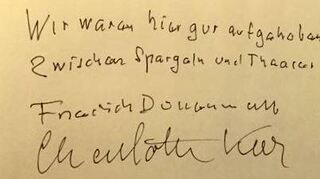 Wir waren hier gut aufgehoben
zwischen Spargeln und Theater
Friedrich Dürrenmatt
Charlotte Kerr